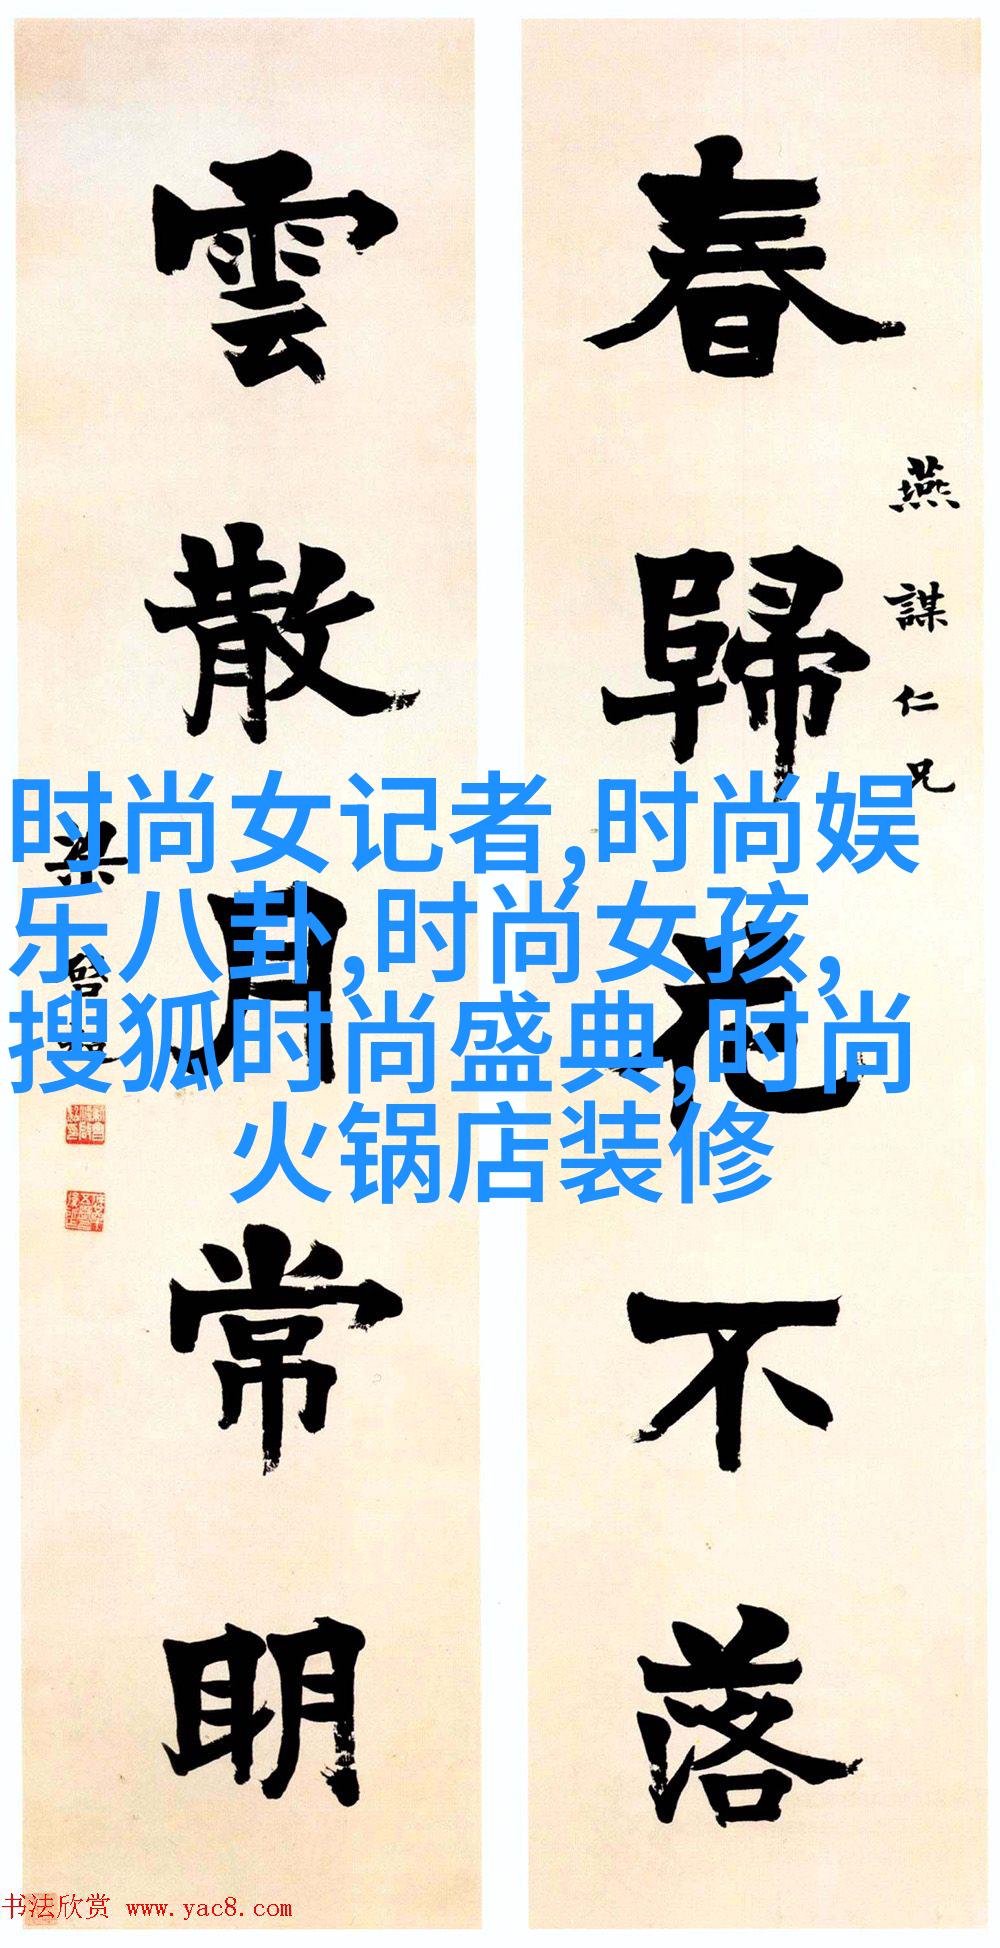 春歸花不落
燕謀仁兄
雲散月常明
梁啓超
时尚女记者,时尚娱
乐八卦,时尚女孩,
搜狐时尚盛典,时尚
火锅店装修
书法欣赏 www.yac8.com